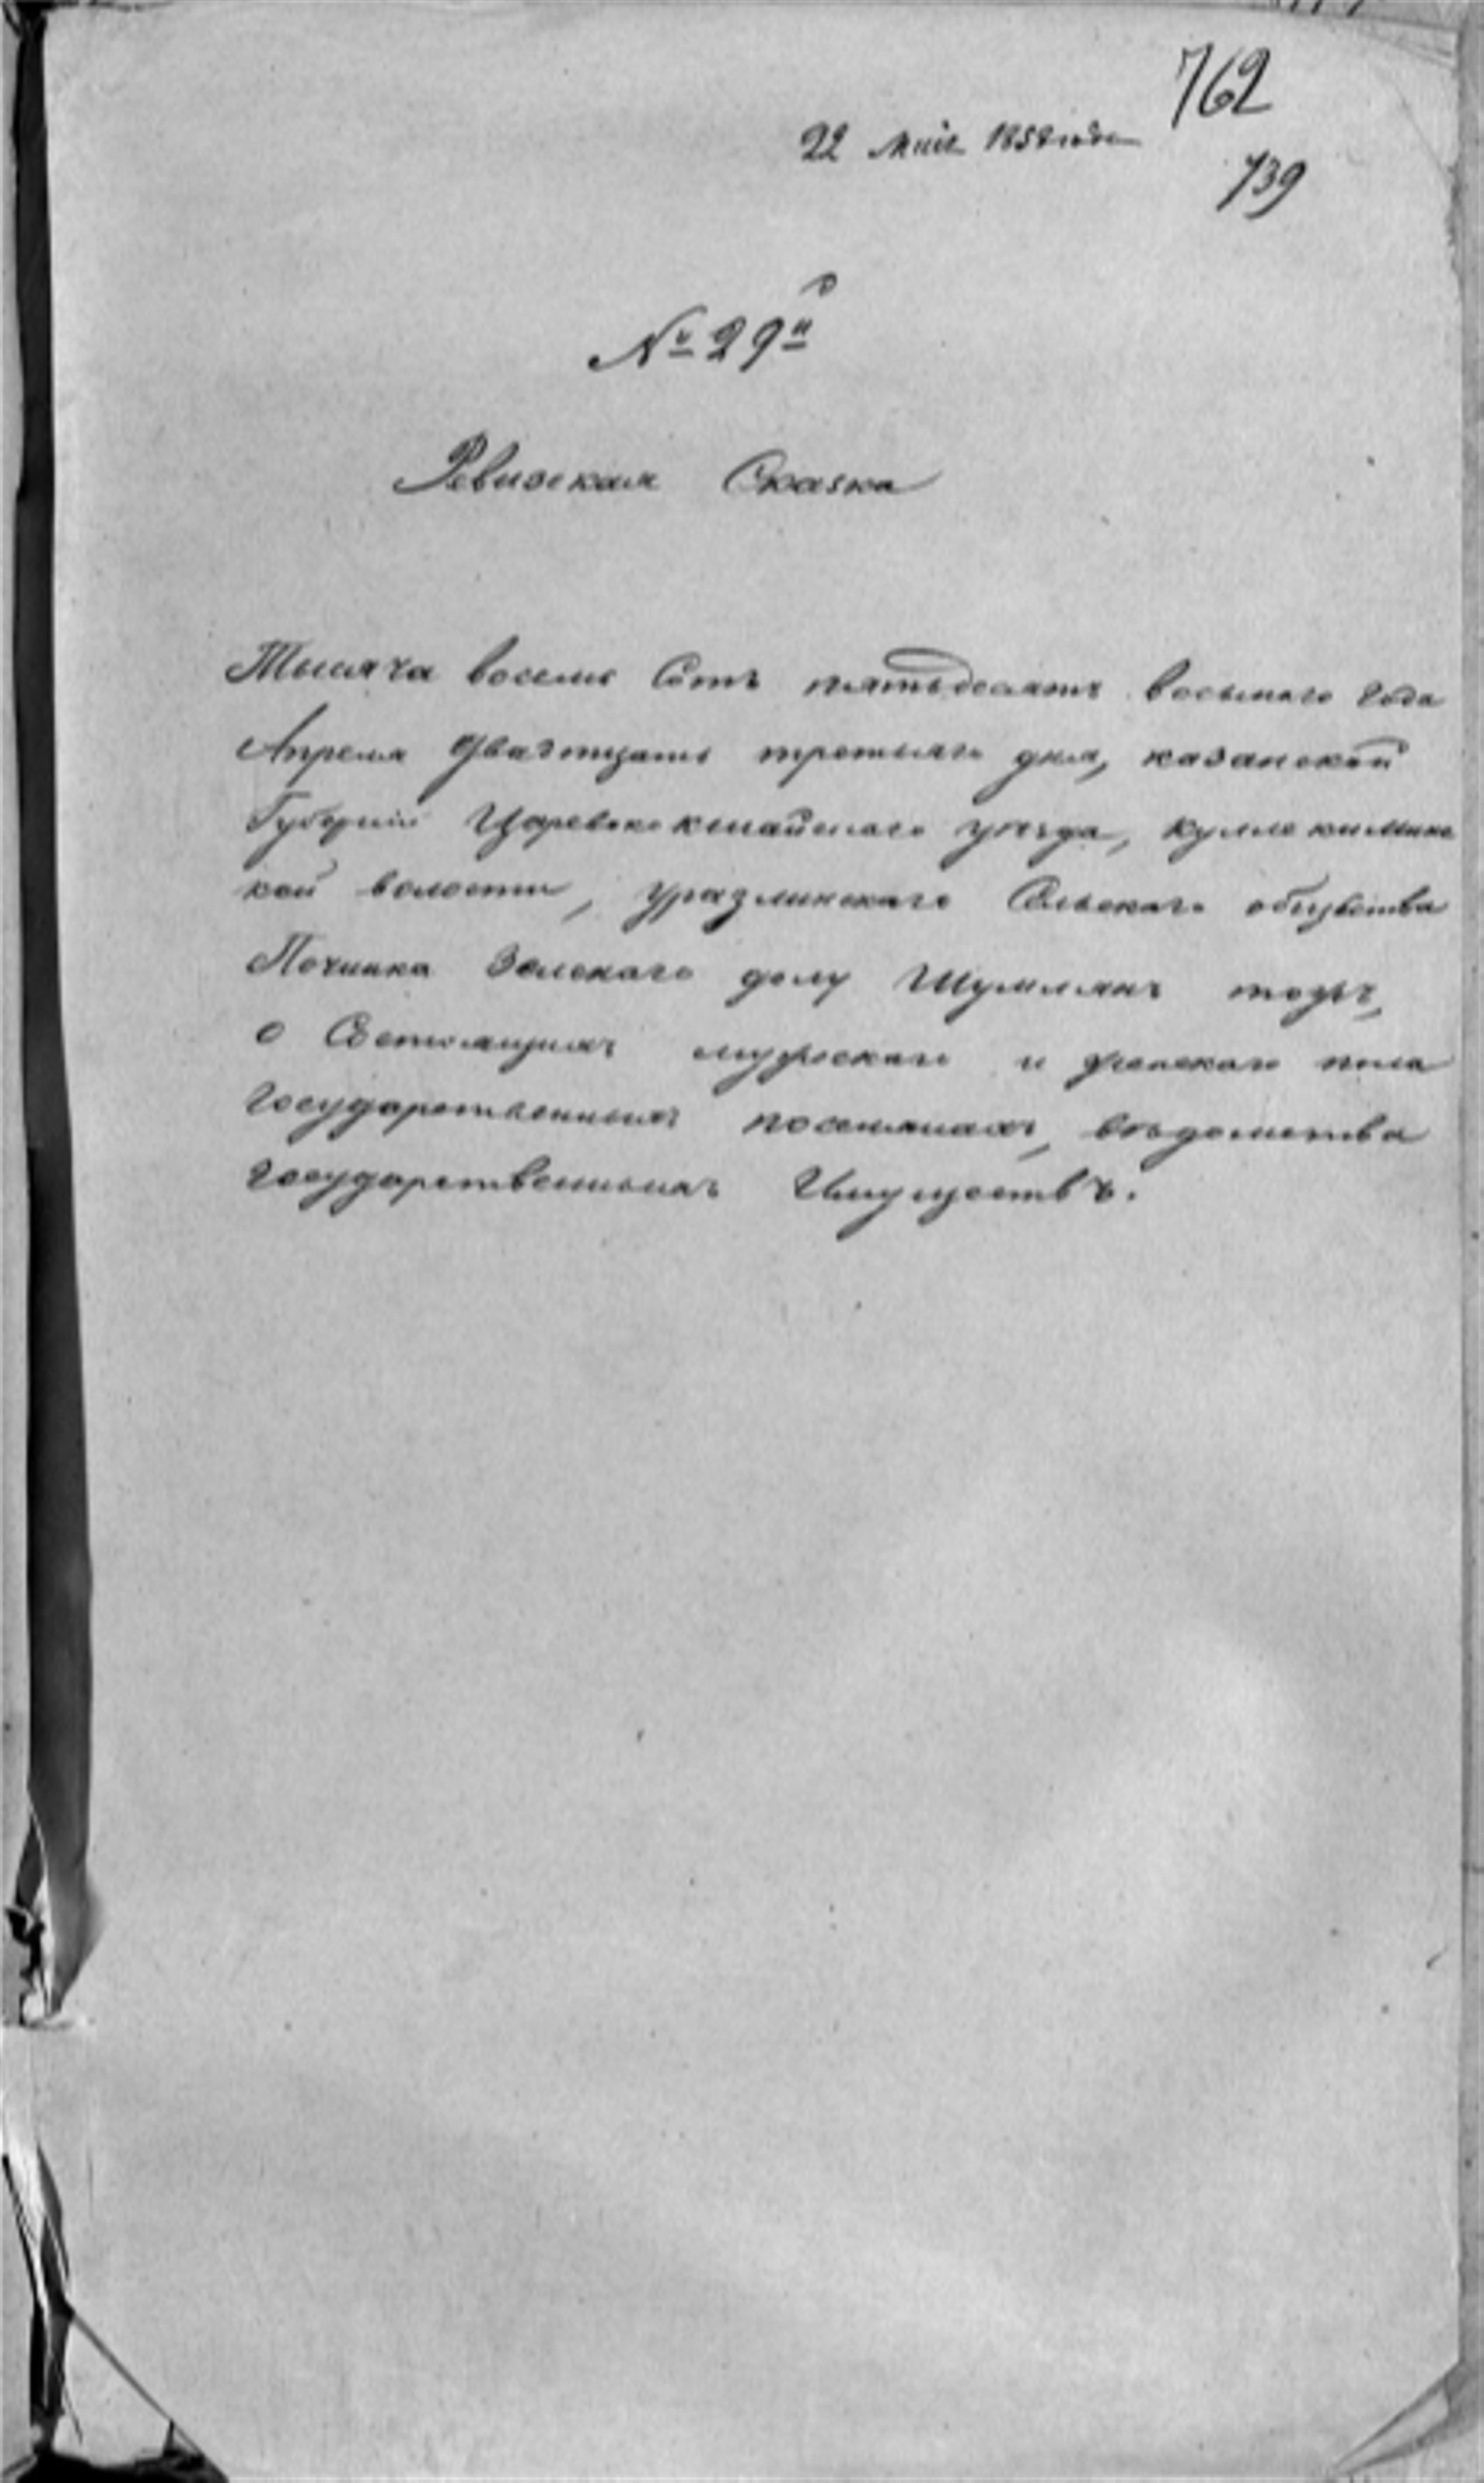 762
22 Мая 1858 года
739
№ 29й
Ревизская Сказка
Тысяча восемь Сотъ пятьдесятъ восьмаго года
Апреля двадтцать третьяго дня, казанской
Губерніи Царевококшайскаго уѣзда, кулле кимине
кой волости, уразлинскаго Сельскаго общества
Починка Зелекаго долу Шумилянъ тожъ,
о Состоящихъ мужескаго и женскаго пола
государственныхъ поселянахъ, вѣдомства
государственныхъ Имуществъ.